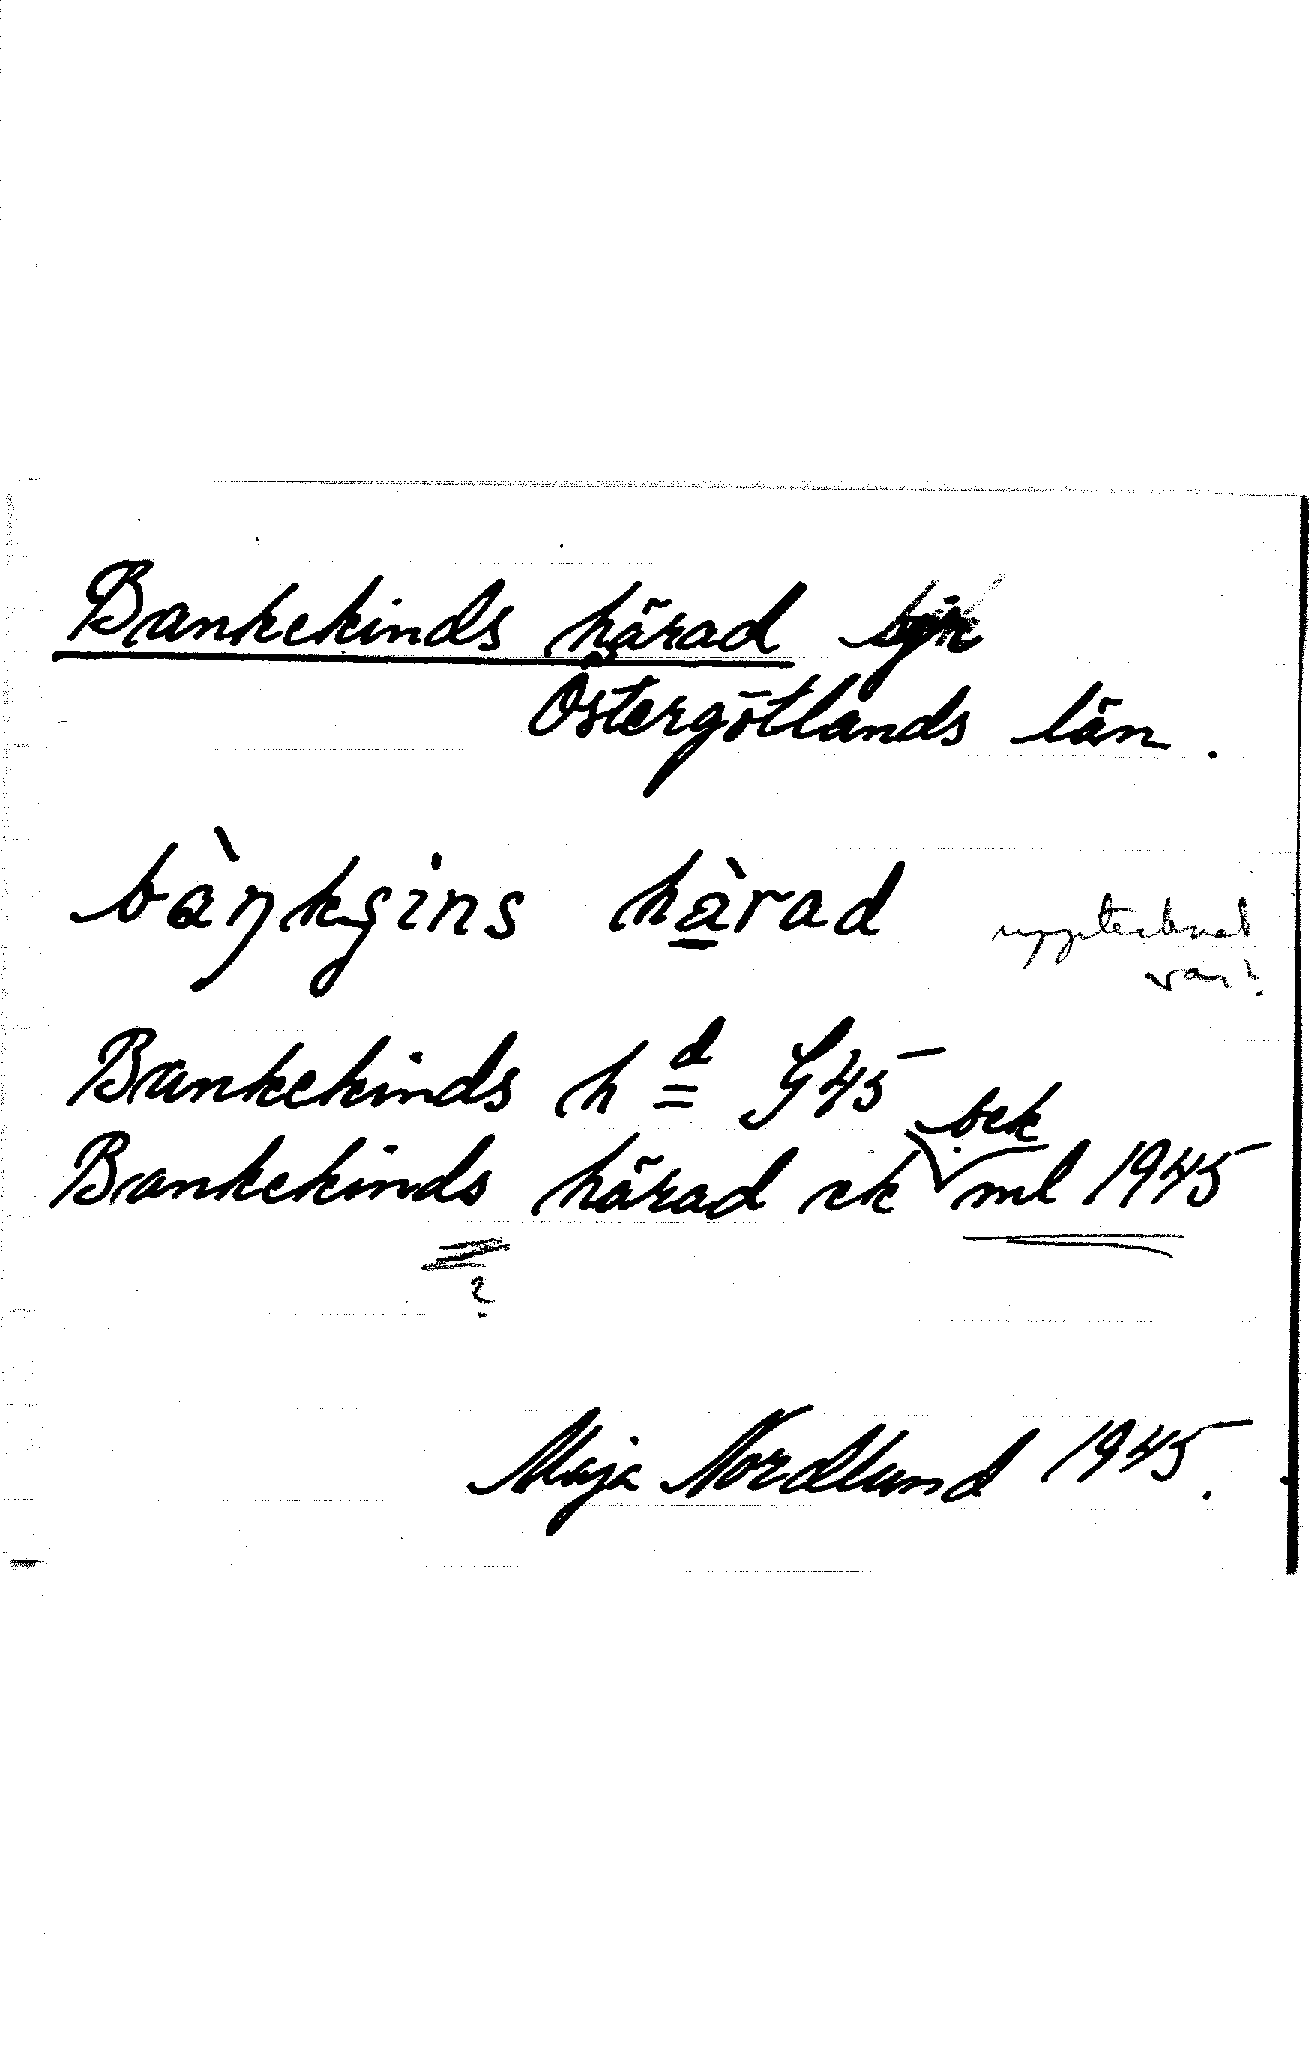 Bankekinds härad
Östergötlands län.
bàŋkʂins hàrad
upptecknat
var?
Bankekinds hd G45
bek
Bankekinds härad ek ml 1945
?
Maja Nordlund 1945.